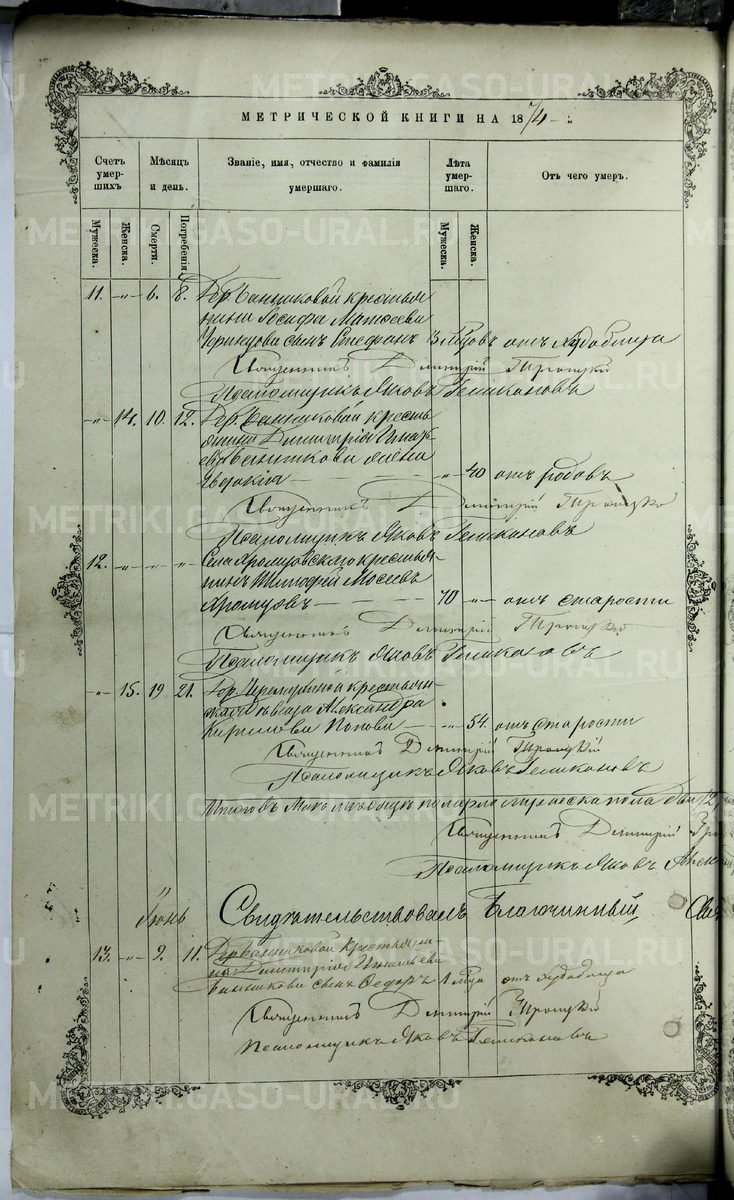 МЕТРИЧЕСКОЙ КНИГИ НА 1874
Счетъ умер-шихъ
Мѣсяцъ и день.
Званіе, имя, отчество и фамилія умершаго.
Лѣта умер-шаго.
Отъ чего умеръ.
Мужеска.
Женска.
Смерти.
Погребенія.
Мужеска.
Женска.
11. -"- 6. 8. Дер. Баннико­вой крестья
нина Іосифа Матѳеева
сынъ Стефанъ 3 мѣсяцовъ отъ
Священникъ Димитрій Троицкій
Псаломщикъ Яковъ Геликоновъ
-"- 14. 10. 12. Дер. Банниковой кресть
янина Димитрія Игнать
ева Банникова жена
Евдокія -"- 40 отъ родовъ
Священникъ Димитрій Троицкій
Псаломщикъ Яковъ Геликоновъ
12. -"- -"- " Села крестья
нинъ Тимофей Мосеевъ
70 -"- отъ старости
Священникъ Димитрій Троицкій
Псаломщикъ Яковъ Геликоновъ
-"- 15. 19 21. Дер. крестьян
Александра
Кирилова Попова -"- 54. отъ старости
Священникъ Димитрій Троицкій
Псаломщикъ Яковъ Геликоновъ
Итого въ Маѣ мѣсяцѣ померло мужеска пола два /2/
Священникъ Димитрій
Псаломщикъ Яковъ
Свидѣтельствовалъ Благочинный
Іюнь
13. -"- 9. 11. Дер. Банниковой крестьяни
на Димитрія Игнатьева
Банникова сынъ Ѳедоръ 1 мѣс. отъ
Священникъ Димитрій Троицкій
Псаломщикъ Яковъ Геликоновъ
METRIKI.GASO-URAL.RU